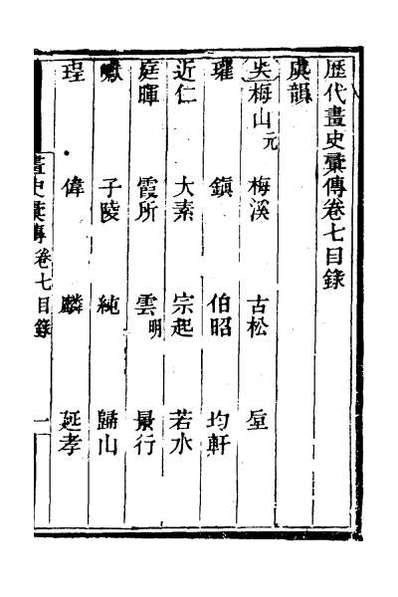 歷代畫史彙傳卷七目錄
虞韻
吴梅山元 梅溪 古松 垕
瓘 鎮 伯昭 均軒
近仁 大素 宗起 若水
庭暉 霞所 雲明 景行
巘 子陵 純 歸山
瑆 偉 麟 延孝
畫史彙傳 卷七目錄 一